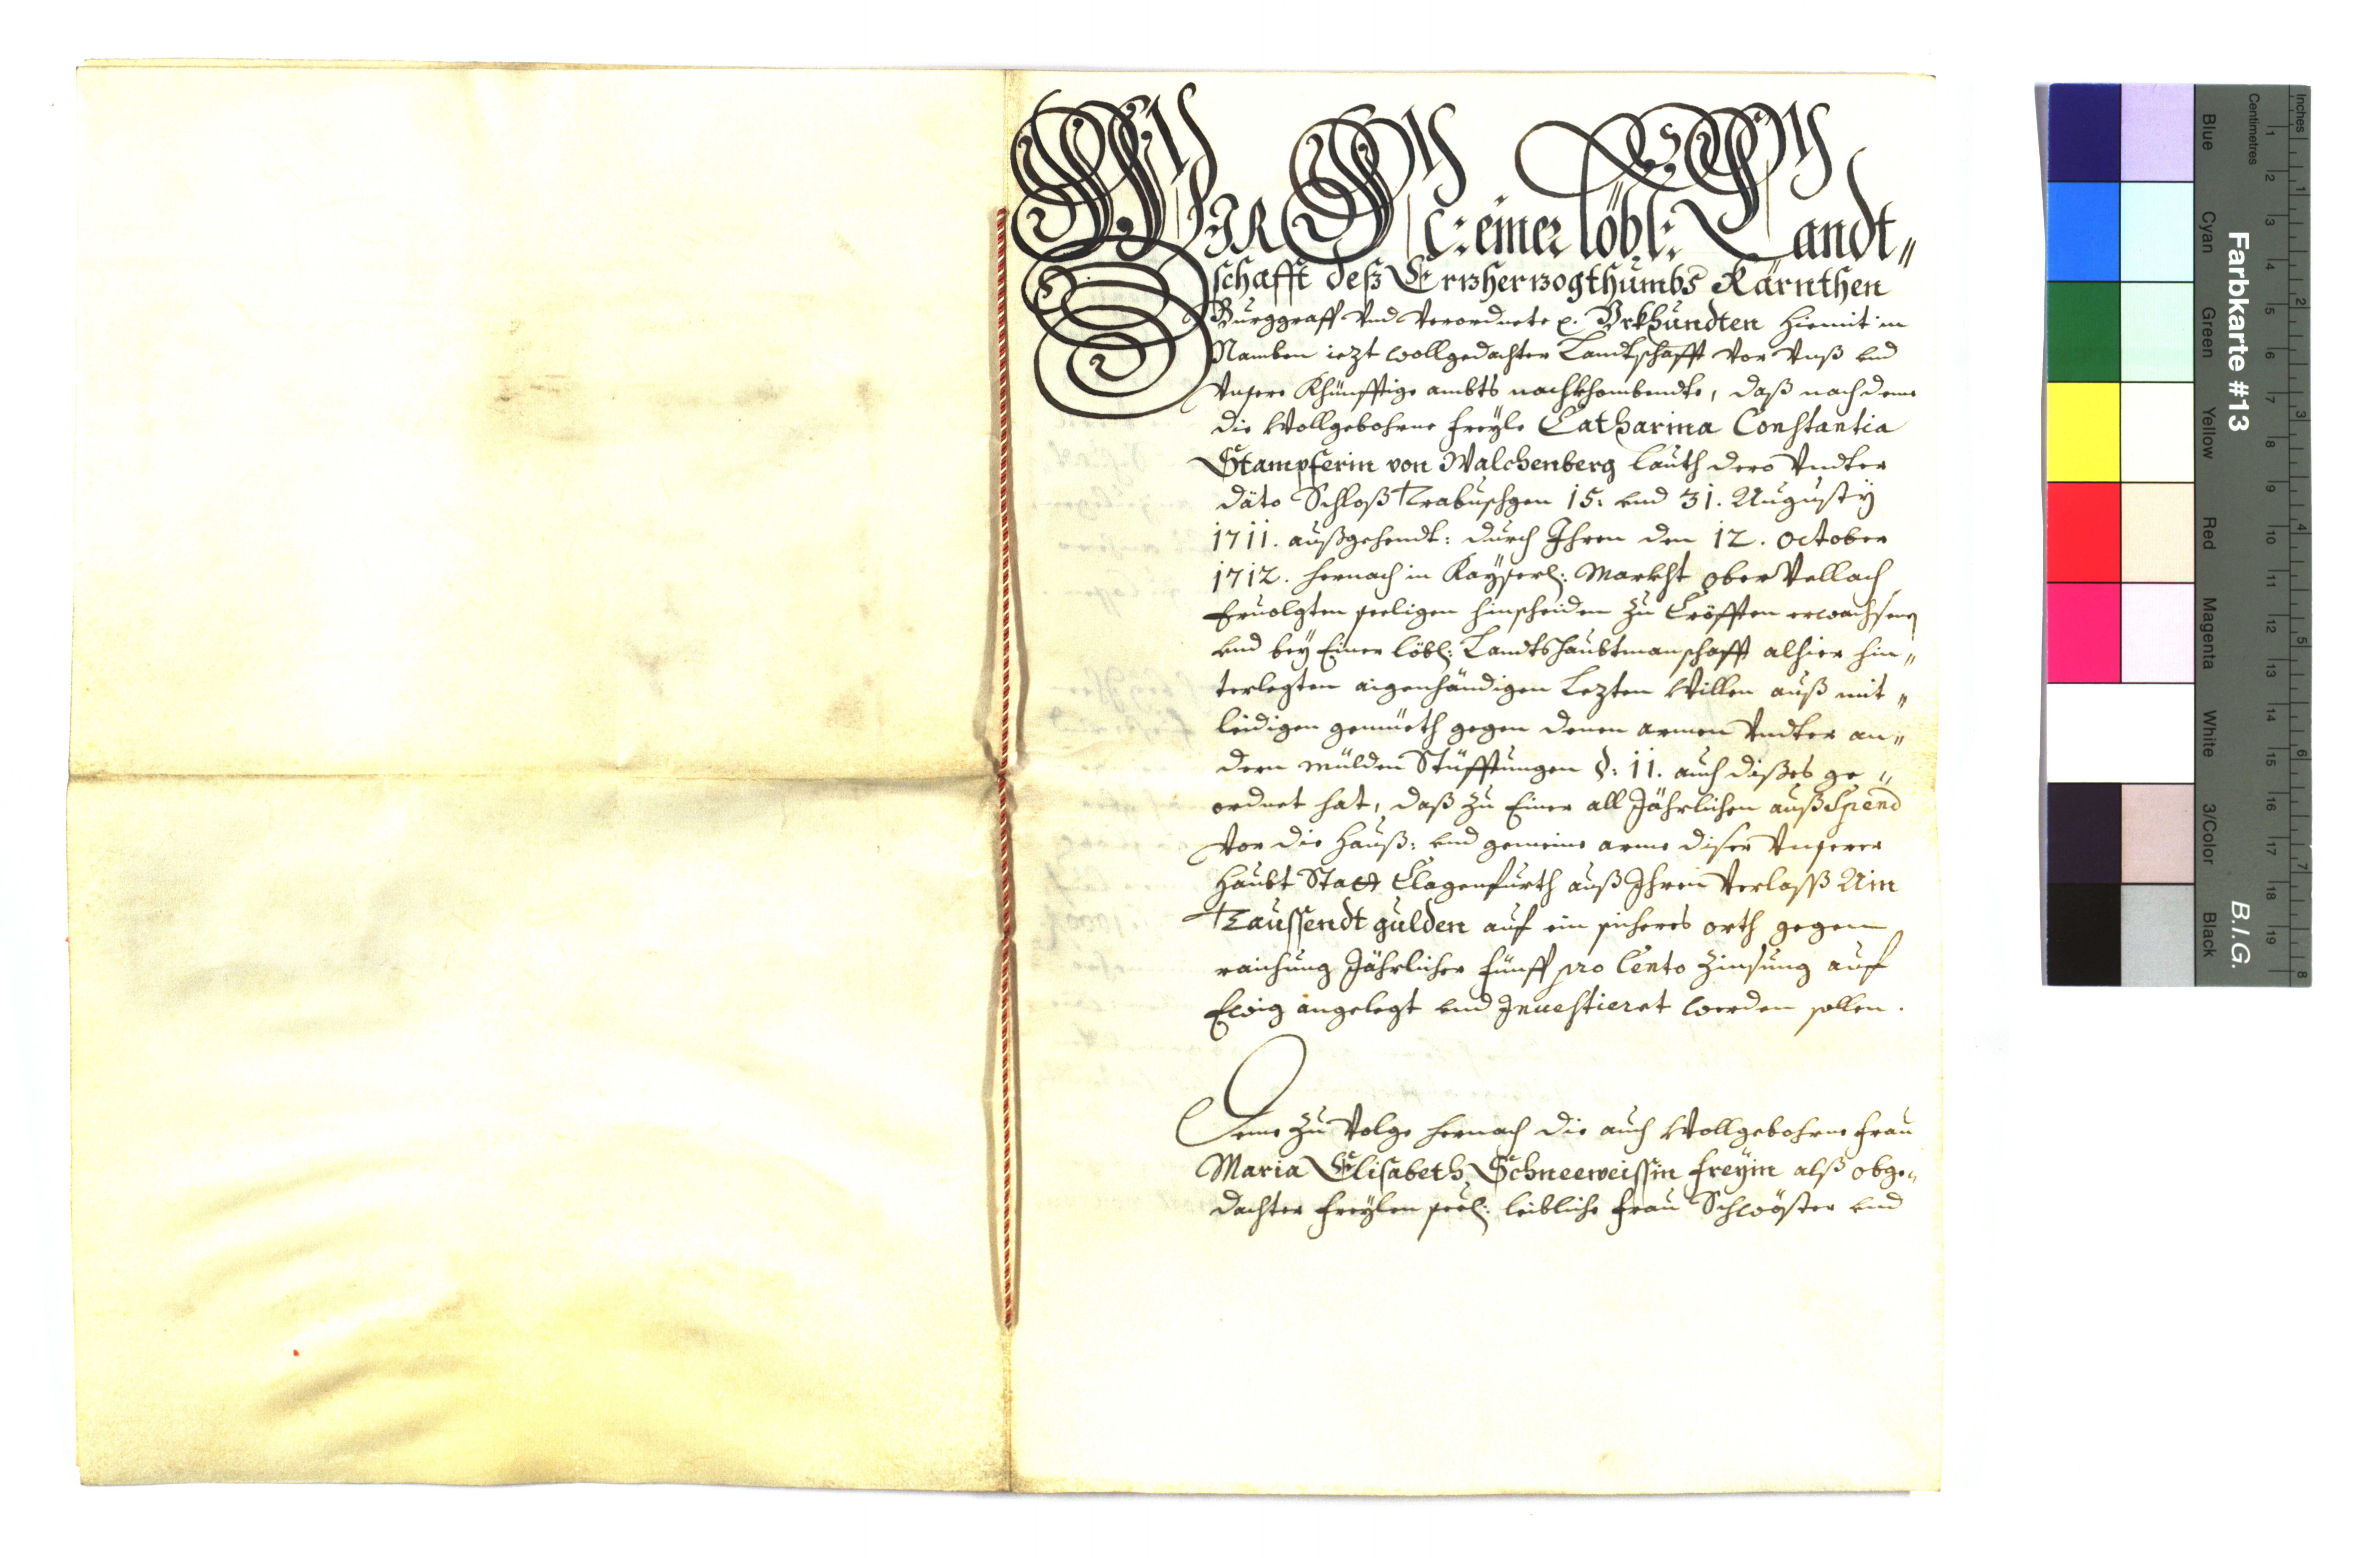 WIR N: C: einer löbl: Landt„
schafft deß Ertzhertzogthumbs Kärnthen
Burggraff vnd Verordnete ꝛc. Vrkhundten hiemit in
Namben iezt wollgedachter Landtschafft vor vnß vnd
vnsere Khünfftige ambts nachkhombendte, daß nach deme
die Wollgebohrne freyle Catharina Constantia
Stampferin von Walchenberg lauth dero vndter
dato Schloß Trabuschgen 15: vnd 31. Augusty
1711. außgehendt: durch Ihren den 12. october
1712. hernach in Kayserl: Markht ober Vellach
Eruolgten seeligen hinscheiden zu Cröfften erwachsenen
vnd bey Einer löbl: Landtshaubtmanschafft alhier hin„
terlegten aigenhändigen Lezten Willen auß mit„
leidigen gemüeth gegen denen armen vndter an„
dern mülden Stüfftungen §: 11. auch dises ge„
ordnet hat, daß zu Einer all Jährlichen auß Spend
vor die Hauß: vnd gemeine arme diser vnserer
Haubt Statt Clagenfurth auß Ihren Verlaß Ain
Taussendt gulden auf ein sicheres orth gegen
raichung Jährlicher fünff pro Cento Zinsung auf
Ewig angelegt vnd Inuestieret werden sollen.
Deme zu Volge hernach die auch Wollgebohrne frau
Maria Elisabeth Schneeweissin freyin alß obge„
dachter freylen seel: leibliche frau Schwöster vnd
Farbkarte #13
B.I.G.
Inches
Centimetres
Blue
Cyan
Green
Yellow
Red
Magenta
White
3/Color
Black
1 2 3 4 5 6 7 8 9 10 11 12 13 14 15 16 17 18 19
1 2 3 4 5 6 7 8